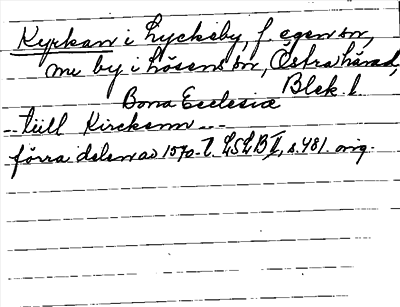 Kyrkan i Lyckeby, f. egen sn,
nu by i Lösens sn, Östra härad,
Blek. l.
Bona Ecclesiæ
-- tiill Kirckenn --
förra delen av 1570-t. LSLB II, s. 481. orig.